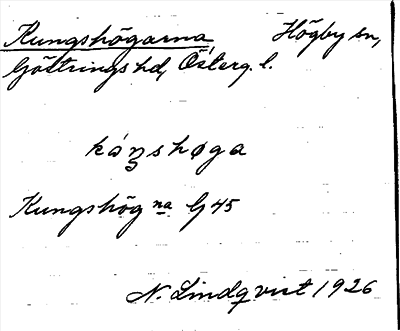 Kungshögarna Högby sn,
Göstrings hd, Österg. l.
káŋshøga
Kungshög na G 45
N. Lindqvist 1926